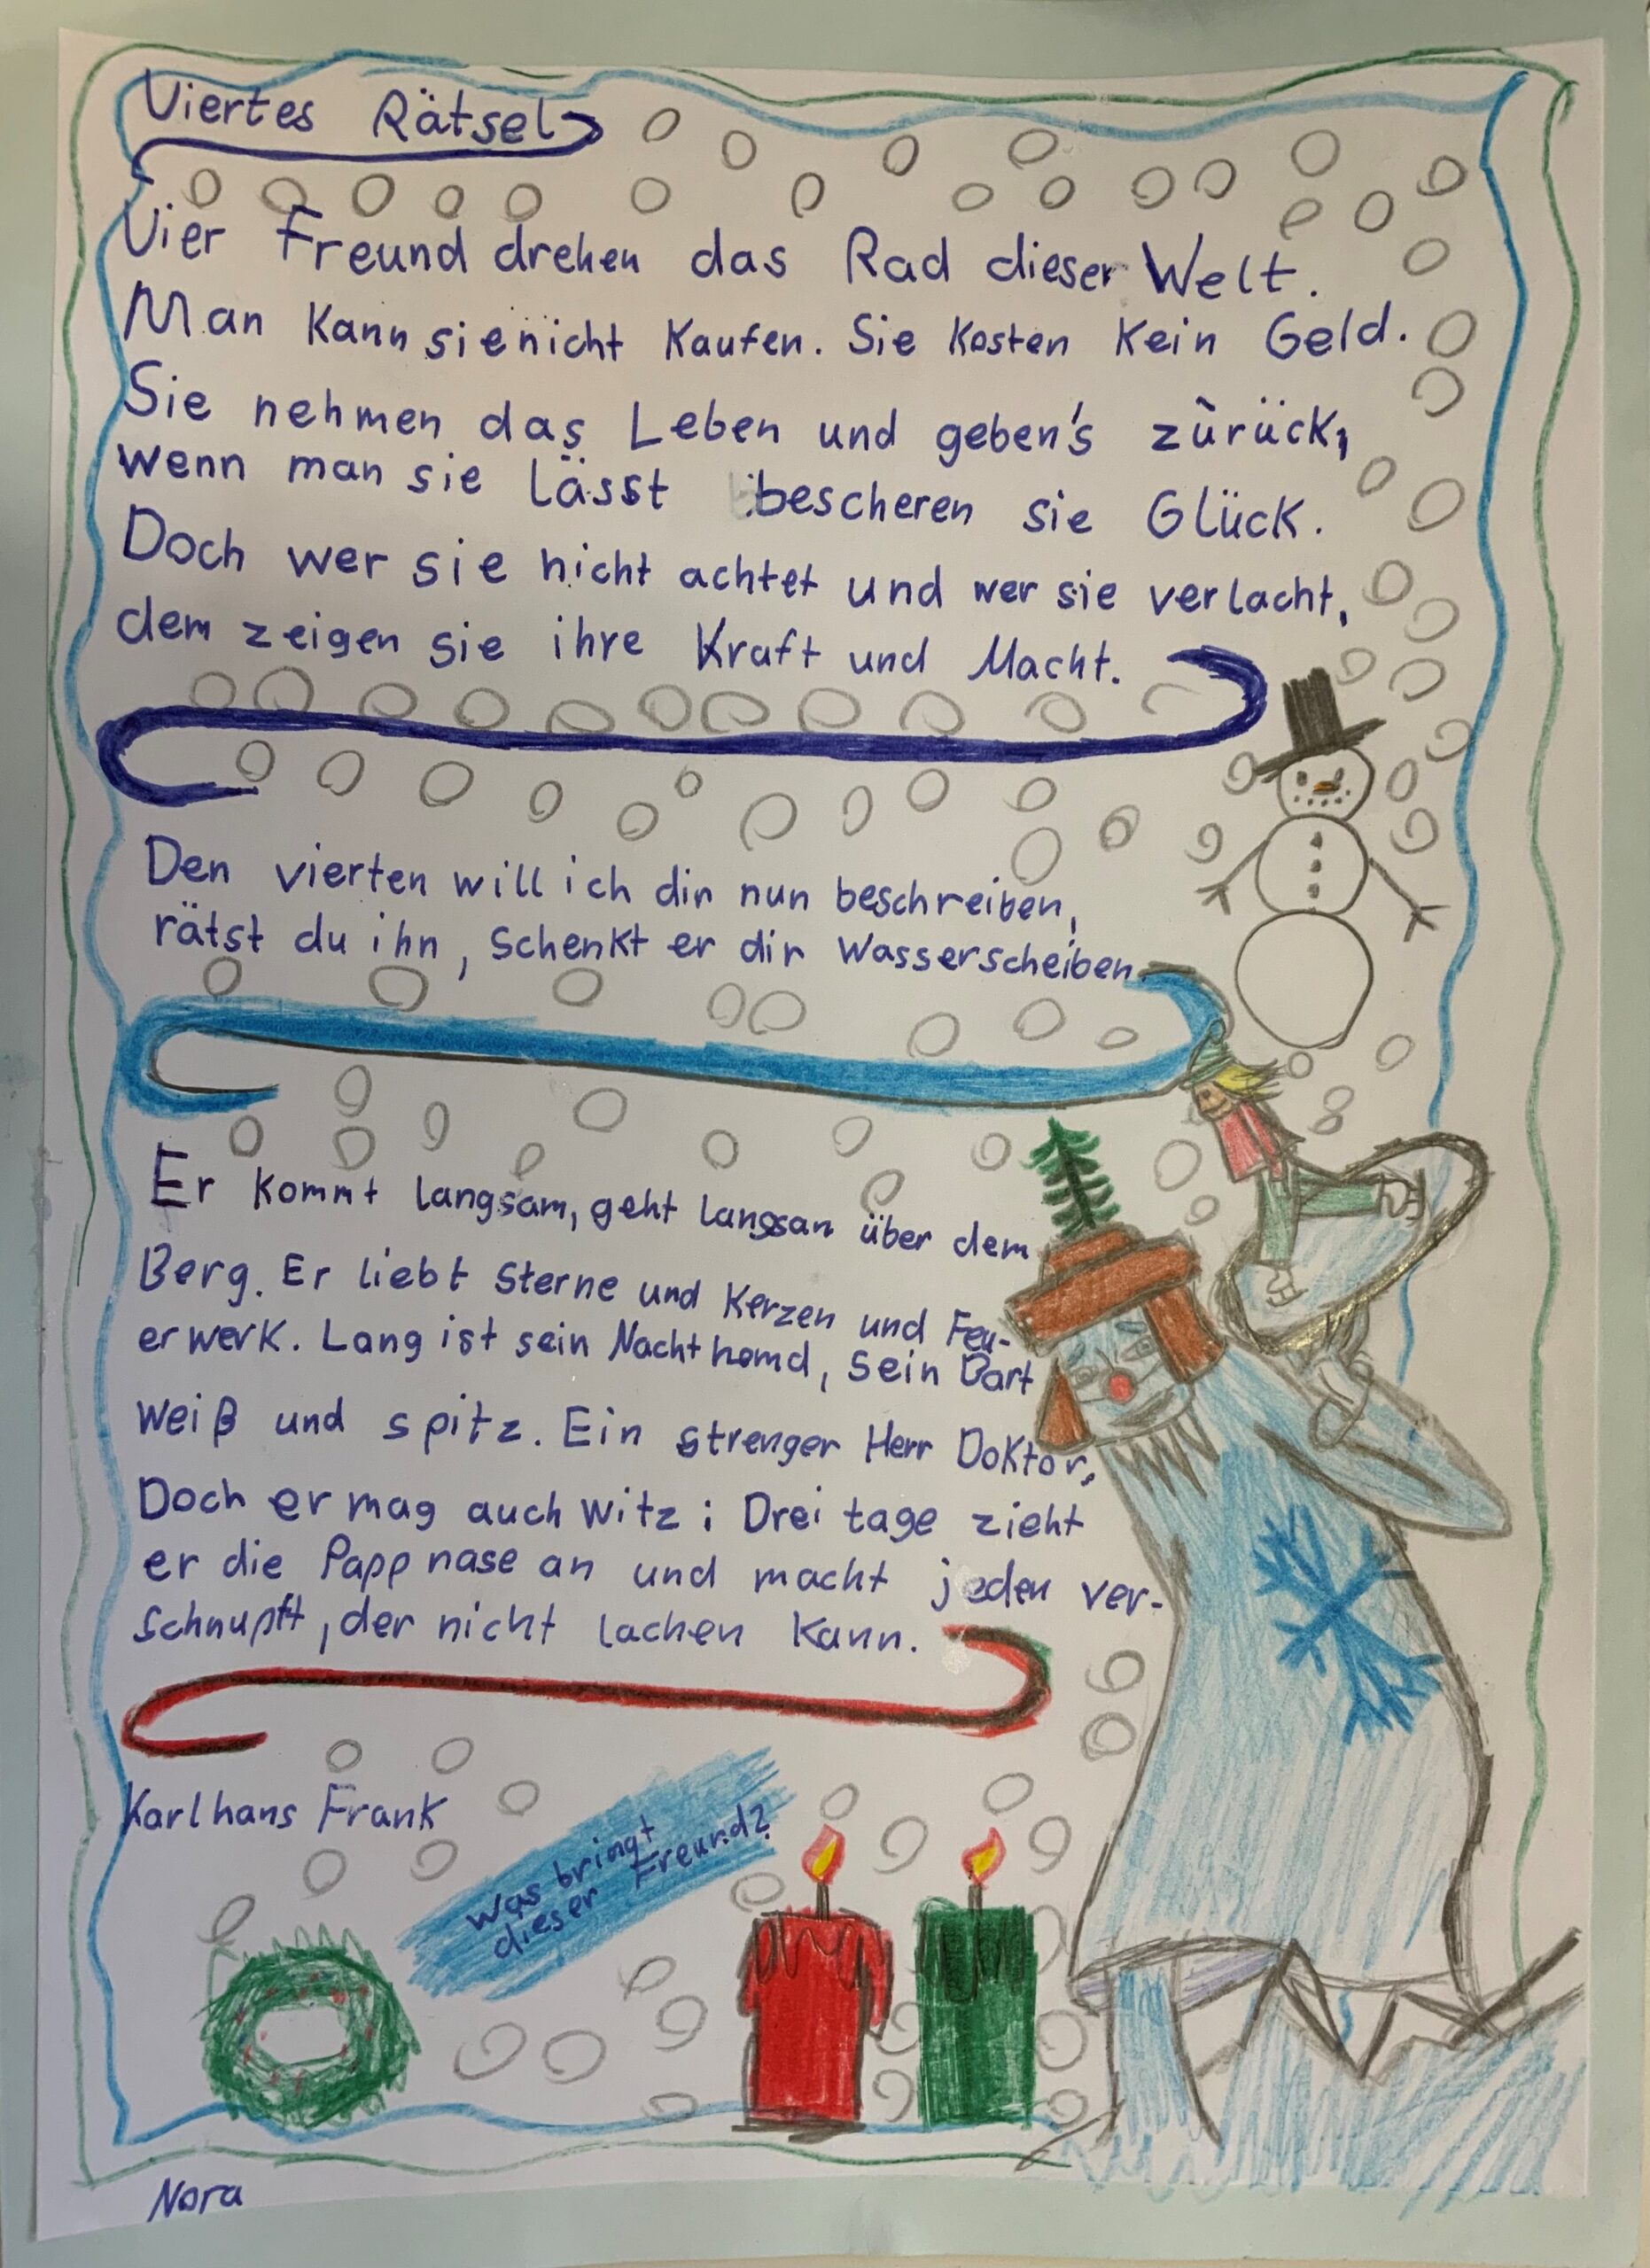 Viertes Rätsel
Vier Freund drehen das Rad dieser Welt.
Man Kann sie nicht Kaufen. Sie Kosten Kein Geld.
Sie nehmen das Leben und geben's zürück,
wenn man sie lässt bescheren sie Glück.
Doch wer sie nicht achtet und wer sie verlacht,
dem zeigen sie ihre Kraft und Macht.
Den vierten will ich dir nun beschreiben,
rätst du ihn, schenkt er dir Wasserscheiben.
Er kommt langsam, geht langsam über dem
Berg. Er liebt Sterne und Kerzen und Feu-
erwerk. Lang ist sein Nachthemd, sein Bart
weiß und spitz. Ein strenger Herr Doktor,
Doch er mag auch Witz: Drei tage zieht
er die Pappnase an und macht jeden ver-
schnupft, der nicht lachen Kann.
Karlhans Frank
Was bringt
dieser Freund?
Nora